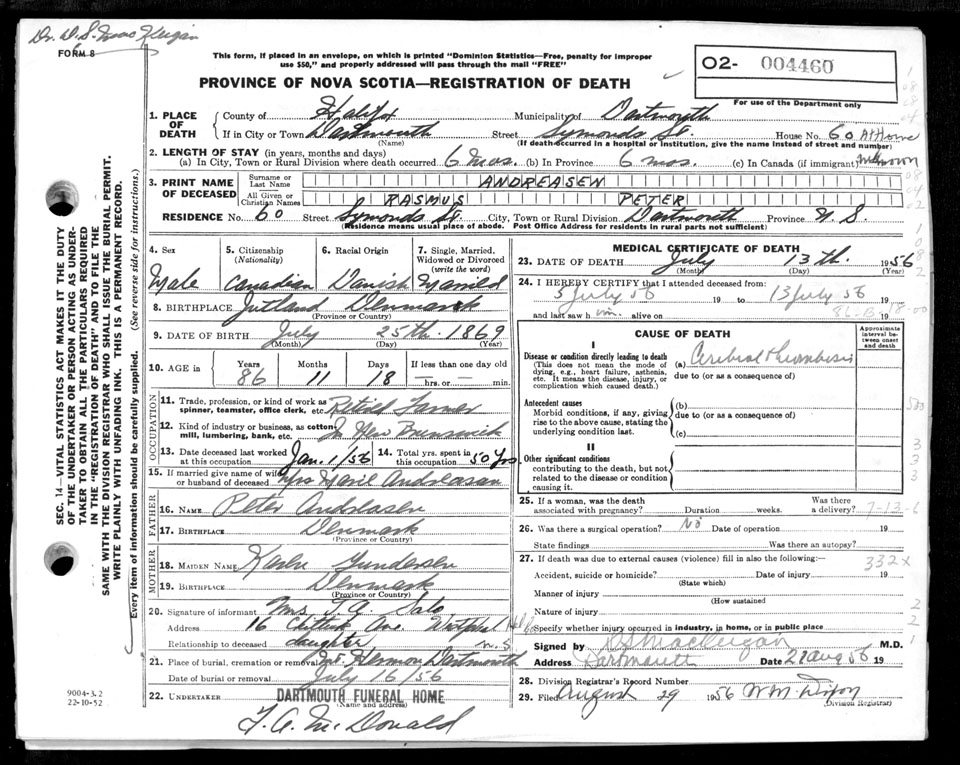 Dr. D. S. MacKeigan
FORM 8
This form, if placed in an envelope, on which is printed "Dominion Statistics—Free, penalty for improper
use $50," and properly addressed will pass through the mail "FREE"
PROVINCE OF NOVA SCOTIA—REGISTRATION OF DEATH
O2- 004460
For use of the Department only
1. PLACE OF DEATH
County of Halifax Municipality of Dartmouth
If in City or Town Dartmouth Street Symonds St. House No. 60 At Home
(Name) (If death occurred in a hospital or institution, give the name instead of street and number)
2. LENGTH OF STAY (in years, months and days)
(a) In City, Town or Rural Division where death occurred 6 mos. (b) In Province 6 mos. (c) In Canada (if immigrant) unknown
3. PRINT NAME OF DECEASED
Surname or Last Name ANDREASEN
All Given or Christian Names RASMUS PETER
RESIDENCE No. 60 Street Symonds St. City, Town or Rural Division Dartmouth Province N.S.
(Residence means usual place of abode. Post Office Address for residents in rural parts not sufficient)
4. Sex
Male
5. Citizenship (Nationality)
Canadian
6. Racial Origin
Danish
7. Single, Married, Widowed or Divorced (write the word)
Married
8. BIRTHPLACE Jutland Denmark
(Province or Country)
9. DATE OF BIRTH July 25th. 1869
(Month) (Day) (Year)
10. AGE in Years Months Days If less than one day old
86 11 18 — hrs. or — min.
OCCUPATION
11. Trade, profession, or kind of work as
spinner, teamster, office clerk, etc. Retired Farmer
12. Kind of industry or business, as cotton-
mill, lumbering, bank, etc. In New Brunswick
13. Date deceased last worked
at this occupation Jan. 1/56
14. Total yrs. spent in
this occupation 50 Yrs
15. If married give name of wife
or husband of deceased Mrs Marie Andreasan
FATHER
16. NAME Peter Andreasen
17. BIRTHPLACE Denmark
(Province or Country)
MOTHER
18. MAIDEN NAME Karen Gundersen
19. BIRTHPLACE Denmark
(Province or Country)
20. Signature of informant Mrs. T. A. Salo
Address 16 Ave. Westphal Hfx
Relationship to deceased daughter N.S
21. Place of burial, cremation or removal Mt. Hermon Dartmouth
Date of burial or removal July 16/56
22. UNDERTAKER DARTMOUTH FUNERAL HOME
(Name and address)
F. A. McDonald
MEDICAL CERTIFICATE OF DEATH
23. DATE OF DEATH July 13th. 1956
(Month) (Day) (Year)
24. I HEREBY CERTIFY that I attended deceased from:
5 July 56 19 to 13 July 56 19
and last saw h im. alive on 19
CAUSE OF DEATH
Approximate interval between onset and death
I
Disease or condition directly leading to death
(This does not mean the mode of
dying, e.g., heart failure, asthenia,
etc. It means the disease, injury, or
complication which caused death.)
(a) Cerebral thrombosis
due to (or as a consequence of)
Antecedent causes
Morbid conditions, if any, giving
rise to the above cause, stating the
underlying condition last.
(b)
due to (or as a consequence of)
(c)
II
Other significant conditions
contributing to the death, but not
related to the disease or condition
causing it.
25. If a woman, was the death
associated with pregnancy? Duration weeks. Was there a delivery? 7-13-6
26. Was there a surgical operation? No Date of operation 19
State findings Was there an autopsy?
27. If death was due to external causes (violence) fill in also the following: 332x
Accident, suicide or homicide? Date of injury 19
(State which)
Manner of injury
(How sustained
Nature of injury
Specify whether injury occurred in industry, in home, or in public place
Signed by DS MacKeigan M.D.
Address Dartmouth Date 21 Aug 56 19
28. Division Registrar's Record Number
29. Filed August 29 1956 W M Dixon
(Division Registrar)
SEC. 14—VITAL STATISTICS ACT MAKES IT THE DUTY
OF THE UNDERTAKER OR PERSON ACTING AS UNDER-
TAKER TO OBTAIN ALL THE PARTICULARS REQUIRED
IN THE "REGISTRATION OF DEATH" AND TO FILE THE
SAME WITH THE DIVISION REGISTRAR WHO SHALL ISSUE THE BURIAL PERMIT.
WRITE PLAINLY WITH UNFADING INK. THIS IS A PERMANENT RECORD.
Every item of information should be carefully supplied. (See reverse side for instructions.)
9004-3.2
22-10-52